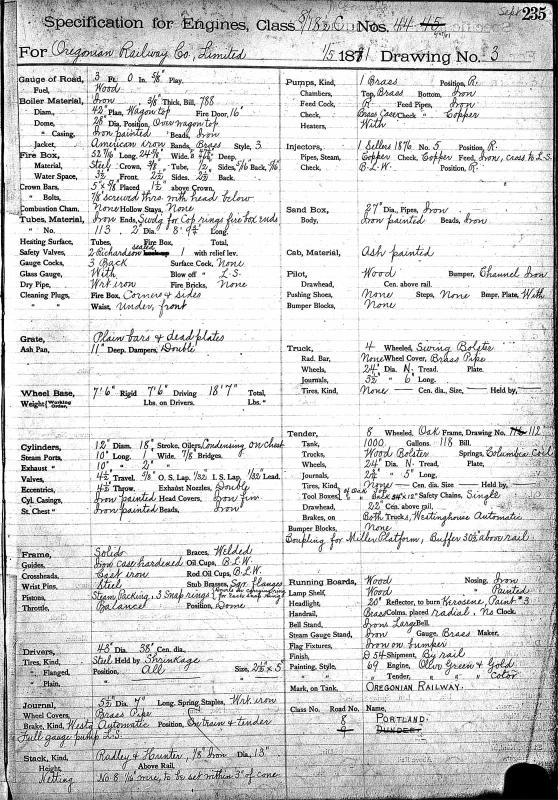 Sept 235
Specification for Engines, Class 8/18 C Nos. 44 45
For Oregonian Railway Co., Limited 1/5 1871 Drawing No. 3
Gauge of Road, 3 Ft. 0 In. 5/8" Play.
Fuel, Wood
Boiler Material, Iron 3/8" Thick, Bill, 788
Diam., 42" Plan, Wagon top Fire Door, 16"
Dome, Dia. Position, Over wagon top
" Casing, Iron painted Beads, Iron
Jacket, American iron Bands, Brass Style, 3
Fire Box, Long, Wide, Deep.
Material, Steel Crown, 3/8 Tube, 1/2 Sides, 5/16 Back, 5/16
Water Space, 3 1/2 Front. 2 1/2 Sides. 2 1/2 Back.
Crown Bars, 5" x 3/8 Placed 1 1/2" above Crown.
" Bolts, 7/8 screwd thro. with head below
Combustion Cham. None Hollow Stays, None
Tubes, Material, Iron Ends, Swdg for Cop rings fire box ends
" No. 113 2" Dia. 8' Long.
Heating Surface, Tubes, Fire Box, Total,
Safety Valves, 2 Richardson sealed 1 with relief lev.
Gauge Cocks, 3 Back Surface Cock, None
Glass Gauge, With Blow off " L.S.
Dry Pipe, Wrt iron Fire Bricks, None
Cleaning Plugs, Fire Box, Corners & sides
" " Waist, Under, front
Grate, Plain bars & dead plates
Ash Pan, 11" Deep. Dampers, Double
Wheel Base, 7' 6" Rigid 7' 6" Driving 18' 7" Total,
Weight (Working Order, Lbs. on Drivers. Lbs. "
Cylinders, 12" Diam. 18" Stroke, Oilers, Condensing on chest
Steam Ports, 10" Long, 1" Wide, 7/8 Bridges.
Exhaust " 10" " 2" "
Valves, 4 1/2 Travel, 5/8" O. S. Lap, 1/32" I. S. Lap, 1/32" Lead.
Eccentrics, 4 1/2 Throw. Exhaust Nozzles, Double
Cyl. Casings, Iron painted Head Covers, Iron fin.
St. Chest " Iron painted Beads, Iron
Frame, Solid Braces, Welded
Guides, Iron case hardened Oil Cups, B.L.W.
Crossheads, Cast iron Rod Oil Cups, B.L.W.
Wrist Pins, Steel Stub Brasses, Sqr. flanges
Pistons, Steam Packing, 3 Snap rings
Throttle, Balance Position, Dome
Drivers, 48" Dia. 38" Cen. dia.
Tires, Kind, Steel Held by Shrinkage
" Flanged, Position, All Size, 2 1/2" x 5"
" Plain, " "
Journal, 5 1/2 Dia. 7" Long. Spring Staples, Wrt. iron
Wheel Covers, Brass Pipe
Brake, Kind, Westg Automatic Position, On train & tender
Full gauge pump L.S.
Stack, Kind, Radley & Hunter, 1/8" Iron Dia. 13"
Height, Above Rail.
Netting No 8 1/16" wire, to be set within 3" of cone
Pumps, Kind, 1 Brass Position, R.
Chambers, Top, Brass Bottom, Iron
Feed Cock, R Feed Pipes, Iron
Check, Brass Case Check " Copper
Heaters, With
Injectors, 1 Sellers 1876 No. 5 Position, R.
Pipes, Steam, Copper Check, Copper Feed, Iron, cross to L.S.
Check, B.L.W. Position, R.
Sand Box, 27" Dia., Pipes, Iron
Body, Iron painted Beads, Iron
Cab, Material, Ash painted
Pilot, Wood Bumper, Channel Iron
Drawhead, Cen. above rail.
Pushing Shoes, None Steps, None Bmpr. Plate, With
Bumper Blocks, None
Truck, 4 Wheeled, Swing Bolster
Rad. Bar, None Wheel Cover, Brass Pipe
Wheels, 24" Dia. N. Tread. Plate.
Journals, 3 1/2 " 6" Long.
Tires, Kind, None — Cen. dia., Size, — Held by, —
Tender, 8 Wheeled, Oak Frame, Drawing No. 112
Tank, 1000 Gallons. 118 Bill.
Trucks, Wood Bolster Springs, Columbia Coil
Wheels, 24" Dia. N. Tread, Plate,
Journals, 2 3/4 " 5" Long.
Tires, Kind, None — Cen. dia. Size — Held by —
Tool Boxes, 2 of Oak on Back 34" x 12" Safety Chains, Single
Drawhead, 22" Cen. above rail.
Brakes, on Both Trucks, Westinghouse Automatic
Bumper Blocks, None
Coupling for Miller Platform, Buffer 30" above rail
Running Boards, Wood Nosing, Iron
Lamp Shelf, Wood " Painted
Headlight, 20" Reflector, to burn Kerosene, Paint #3
Handrail, Brass Colms. placed radial. No Clock.
Bell Stand, Iron Large Bell.
Steam Gauge Stand, Iron Gauge, Brass Maker,
Flag Fixtures, Iron on bumper
Finish, D 54 Shipment, By rail
Painting, Style, 69 Engine, Olive Green & Gold
" " " Tender, " " " Color
Mark, on Tank, OREGONIAN RAILWAY.
Class No. Road No. Name,
8 PORTLAND
9 DUNDEE